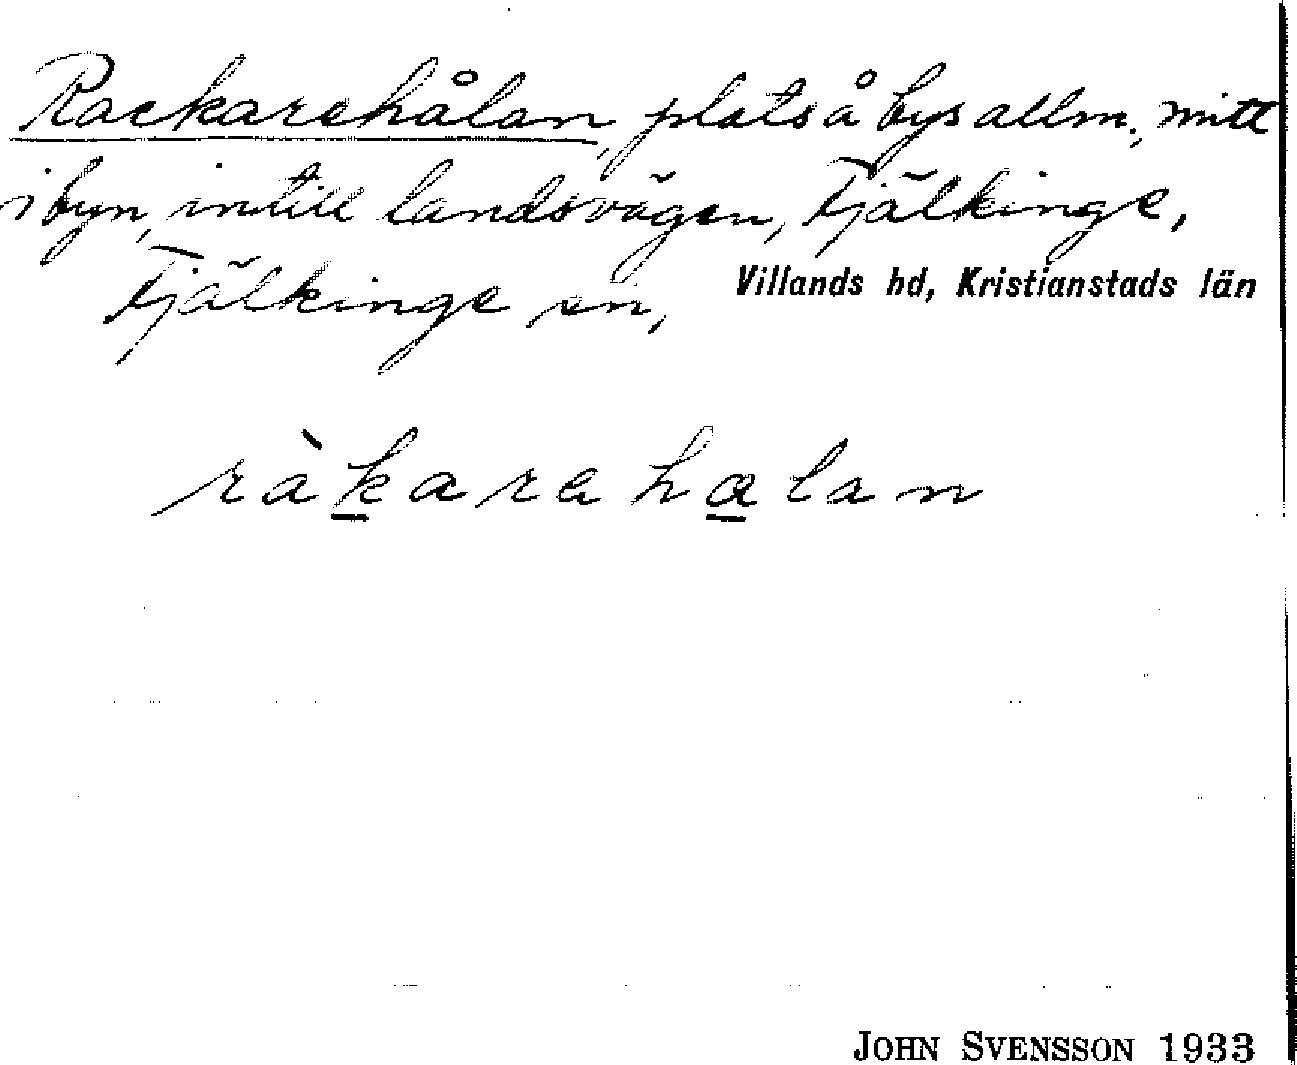 Rackarehålan, plats å bys allm., mitt
i byn, intill landsvägen, Fjälkinge,
Fjälkinge sn, Villands hd, Kristianstads län
ràkarehalan
JOHN SVENSSON 1933